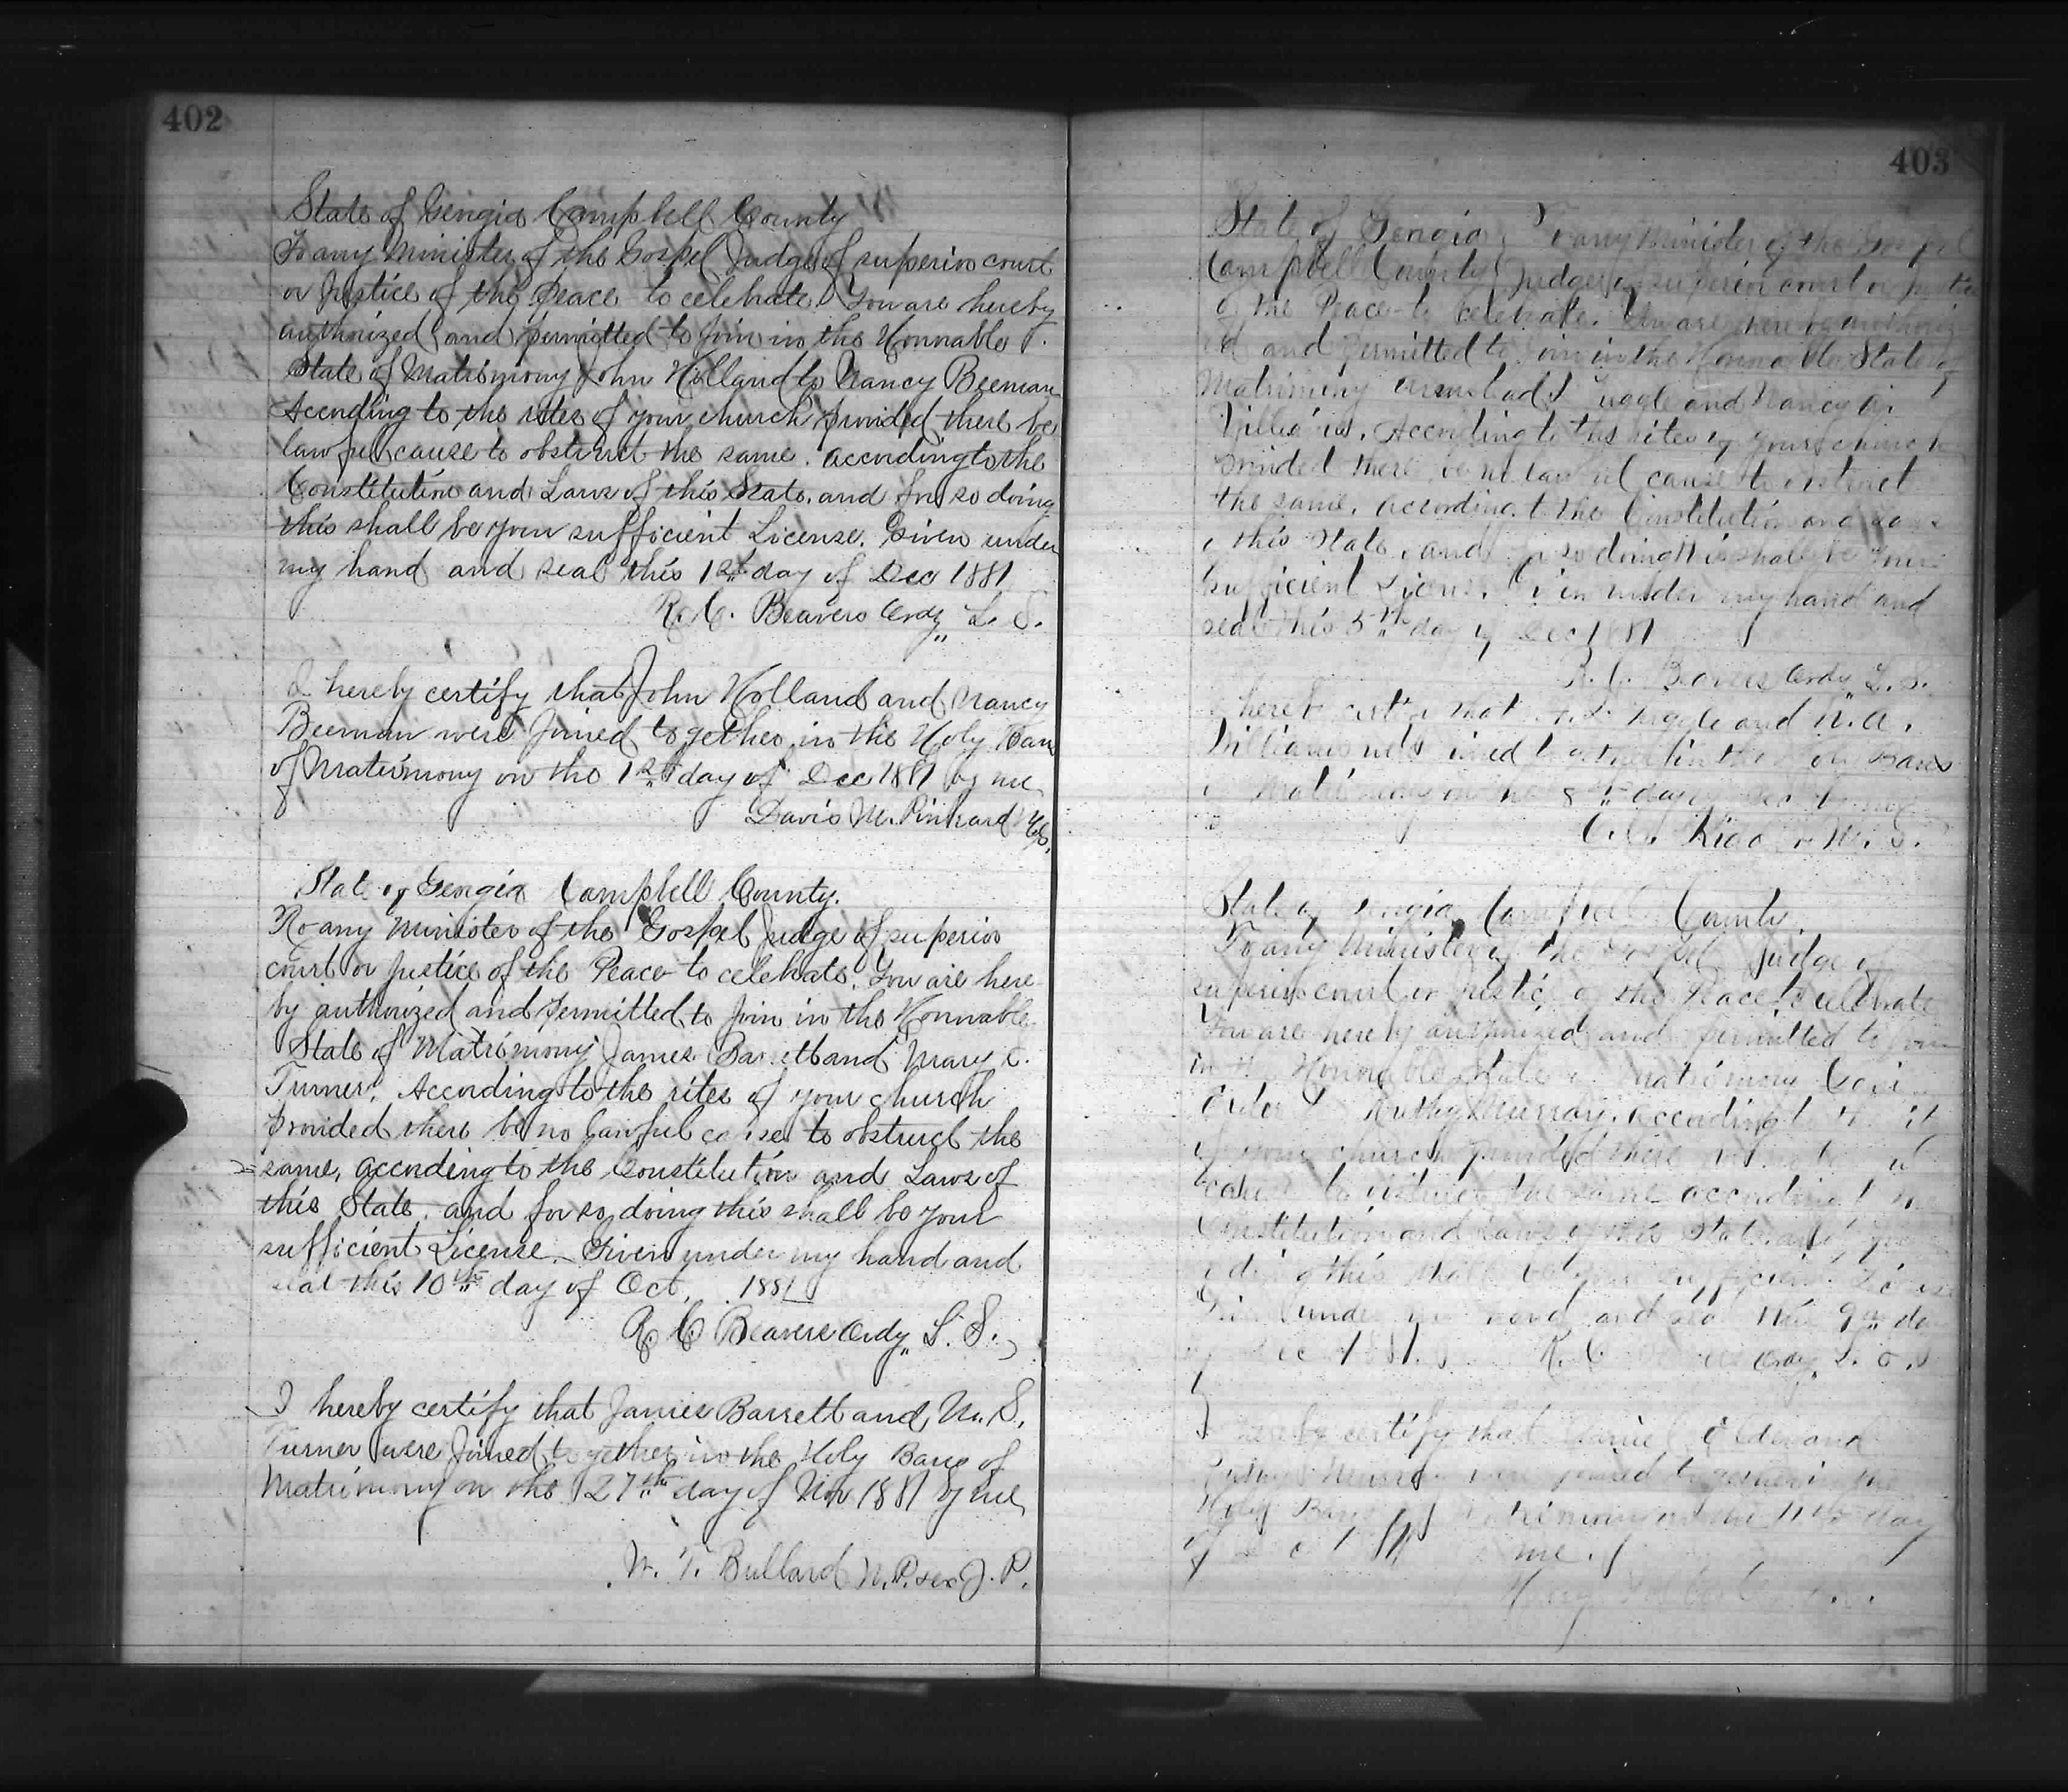 402
State of Georgia Campbell County
To any Minister of the Gospel Judge of superior court
or Justice of the Peace to celebrate. You are hereby
authorized and permitted to Join in the Honorable
State of Matrimony John Holland to Nancy Beeman
According to the rites of your church provided there be
lawful cause to obstruct the same. according to the
Constitution and Laws of this State. and for so doing
this shall be your sufficient License. Given under
my hand and seal this 1st day of Dec 1881
R. C. Beavers Ordy L. S.
I hereby certify that John Holland and Nancy
Beeman were Joined together in the Holy Ban
of Matrimony on the 1st day of Dec 1881 by me
Davis M. Pinkard
State of Georgia Campbell County.
To any Minister of the Gospel Judge of superior
court or Justice of the Peace to celebrate. You are here
by authorized and permitted to Join in the Honorable
State of Matrimony James Barrett and Mary
Turner. According to the rites of your church
provided there be no lawful cause to obstruct the
same, according to the Constitution and Laws of
this State. and for so doing this shall be your
sufficient License. Given under my hand and
seal this 10th day of Oct. 1881
R C Beavers Ordy L. S.
I hereby certify that James Barrett and M. S.
Turner were Joined together in the Holy Bans of
Matrimony on the 27th day of Nov 1881 by me
W. T. Bullard N. P. & ex J. P.
403
State of Georgia To any Minister of the Gospel
Campbell County Judge of superior court or Justice
of the Peace to celebrate. You are hereby authoriz
ed and permitted to Join in the Honorable State of
Matrimony and Nancy A.
Williams. According to the rites of your church
provided there be no lawful cause to obstruct
the same. according to the Constitution and Laws
of this State, and for so doing this shall be your
sufficient License. Given under my hand and
seal this 5th day of Dec 1881
R. C. Beavers Ordy L. S.
I hereby certify that and N. A.
Williams were joined together in the Holy Bans
of Matrimony on the 8th day of Dec by me
State of Georgia Campbell County.
To any Minister of the Gospel Judge of
superior court or Justice of the Peace to celebrate
You are hereby authorized and permitted to Join
in the Honorable State of Matrimony
Murray. according to the
of your church provided there be no
cause to obstruct the same according to
Constitution and Laws of this State. and for
doing this shall be your sufficient License
Given under my hand and seal this 9th day
of Dec 1881. R. C. Beavers Ordy L. S.
I hereby certify that Elder and
Murray were joined together in the
Holy Bans of Matrimony on the 11th day
of Dec 1881 me.